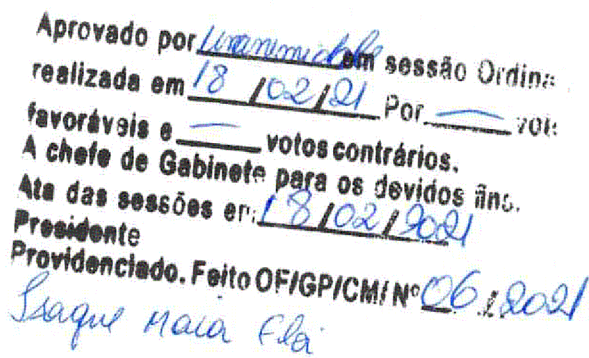 Aprovado por unanimidade em sessão Ordina
realizada em 18/02/21 Por — vot
favoráveis e — votos contrários.
A chefe de Gabinete para os devidos fins.
Ata das sessões em 18/02/2021
Presidente
Providenciado. Feito OF/GP/CM/ Nº 06/2021
Isaque Maia